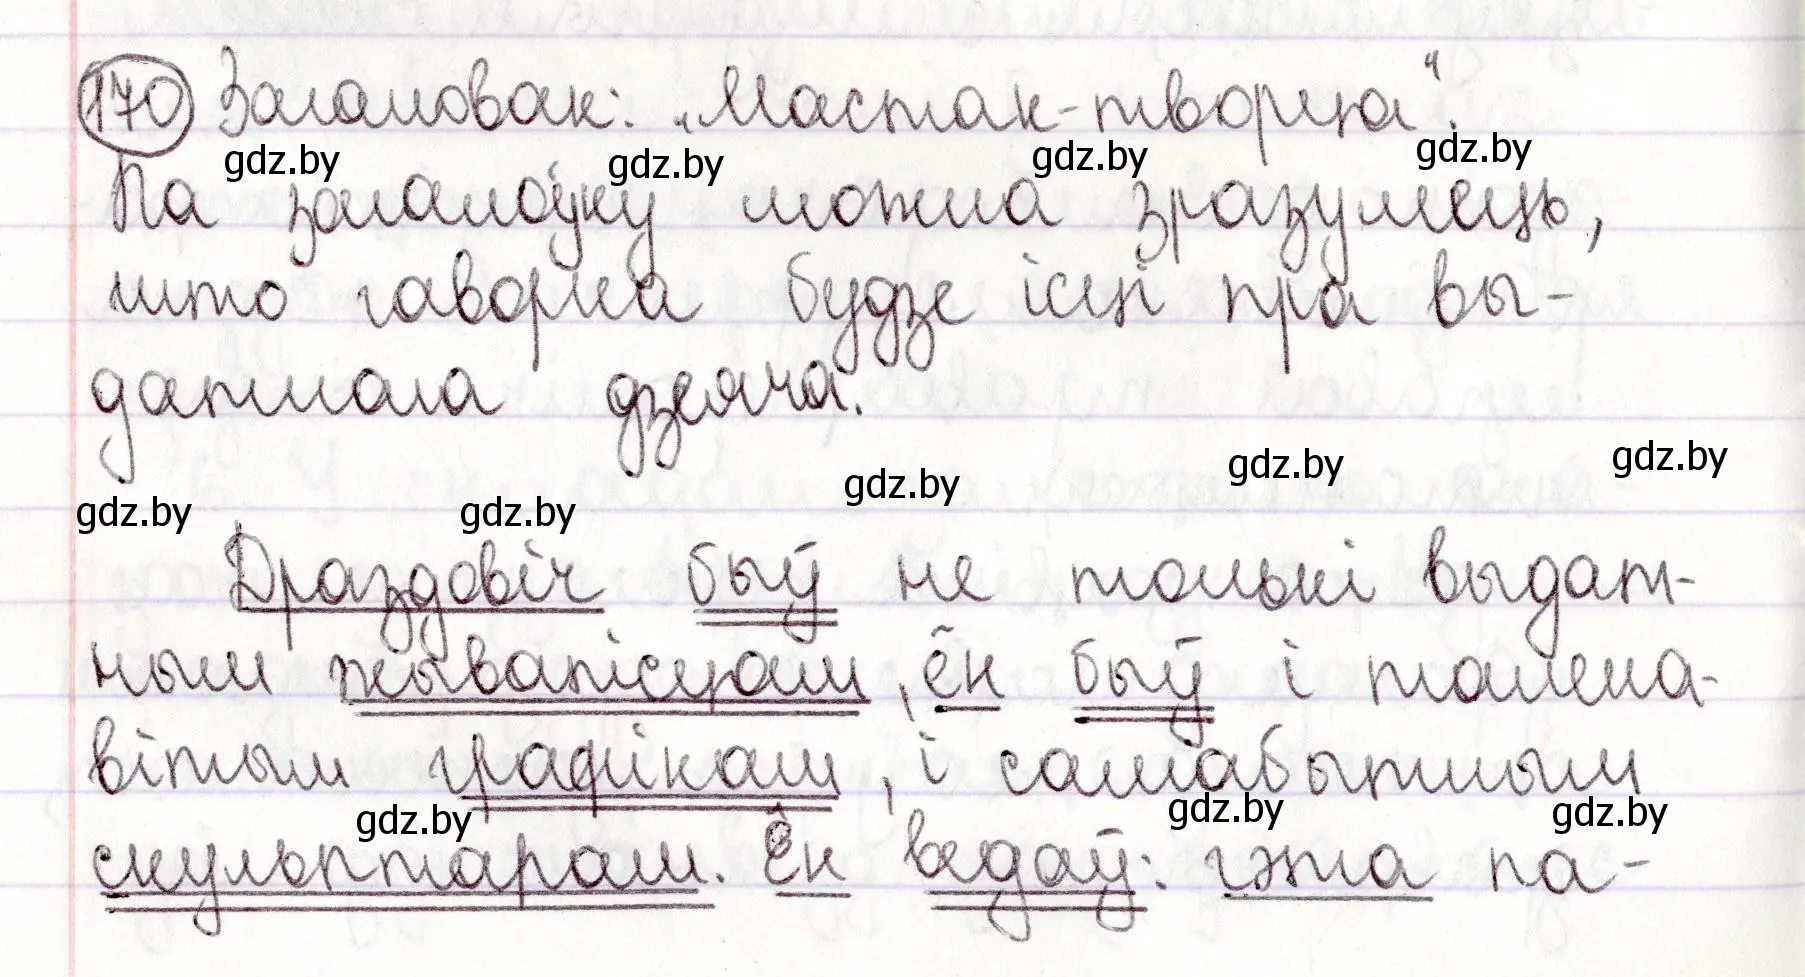 170 Загаловак: „Мастак-творца“.
gdz.by gdz.by gdz.by gdz.by
Па загалоўку можна зразумець,
што гаворка будзе ісці пра вы-
датнага дзеяча.
gdz.by gdz.by gdz.by gdz.by gdz.by
Драздовіч быў не толькі выдат-
ным жывапісцам, ён быў і тална-
вітым графікам, і самабытным
gdz.by gdz.by gdz.by
скульптарам. Ён ведаў: гэта па-